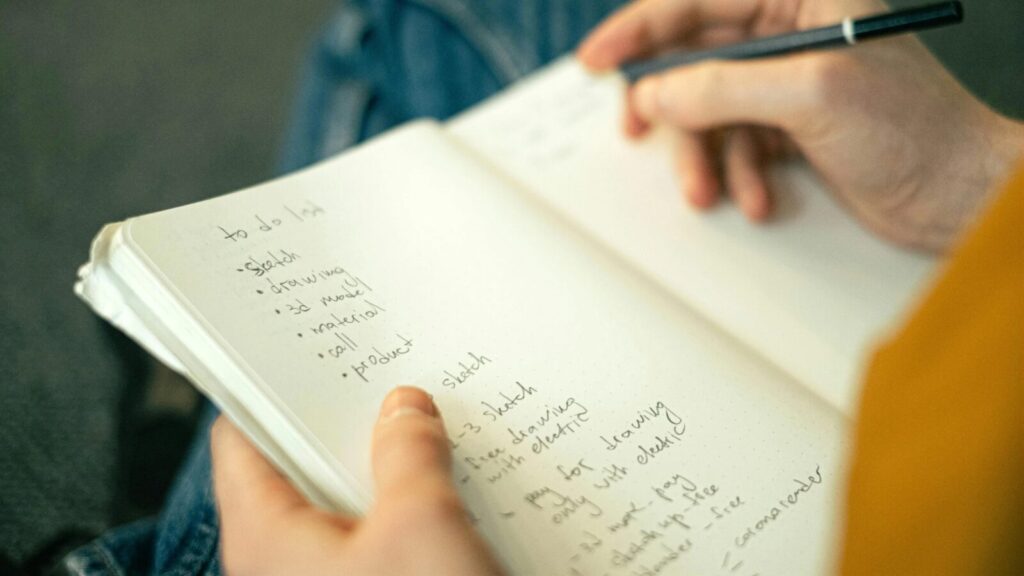 to do list
• sketch
• drawing
• 3d model
• material
• call
• product
sketch
-3 sketch
- free drawing
with electric
- pay for drawing
only with electric
- 3d more pay
- sketch up-free
-free
- corona render